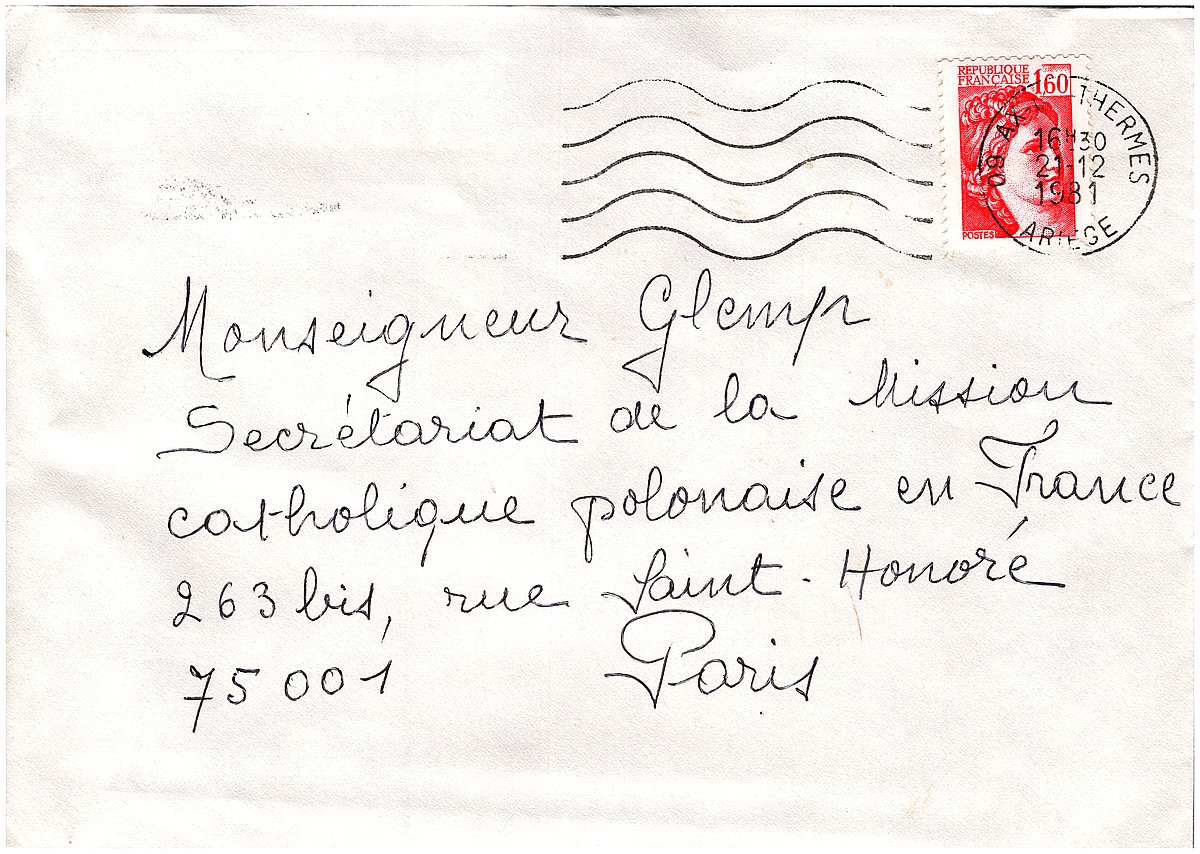 RÉPUBLIQUE
FRANÇAISE
1,60
POSTES
09 AX- THERMES
16H30
21-12
1981
ARIEGE
Monseigneur Glemp
Secrétariat de la Mission
catholique polonaise en France
263 bis, rue Saint-Honoré
75001 Paris